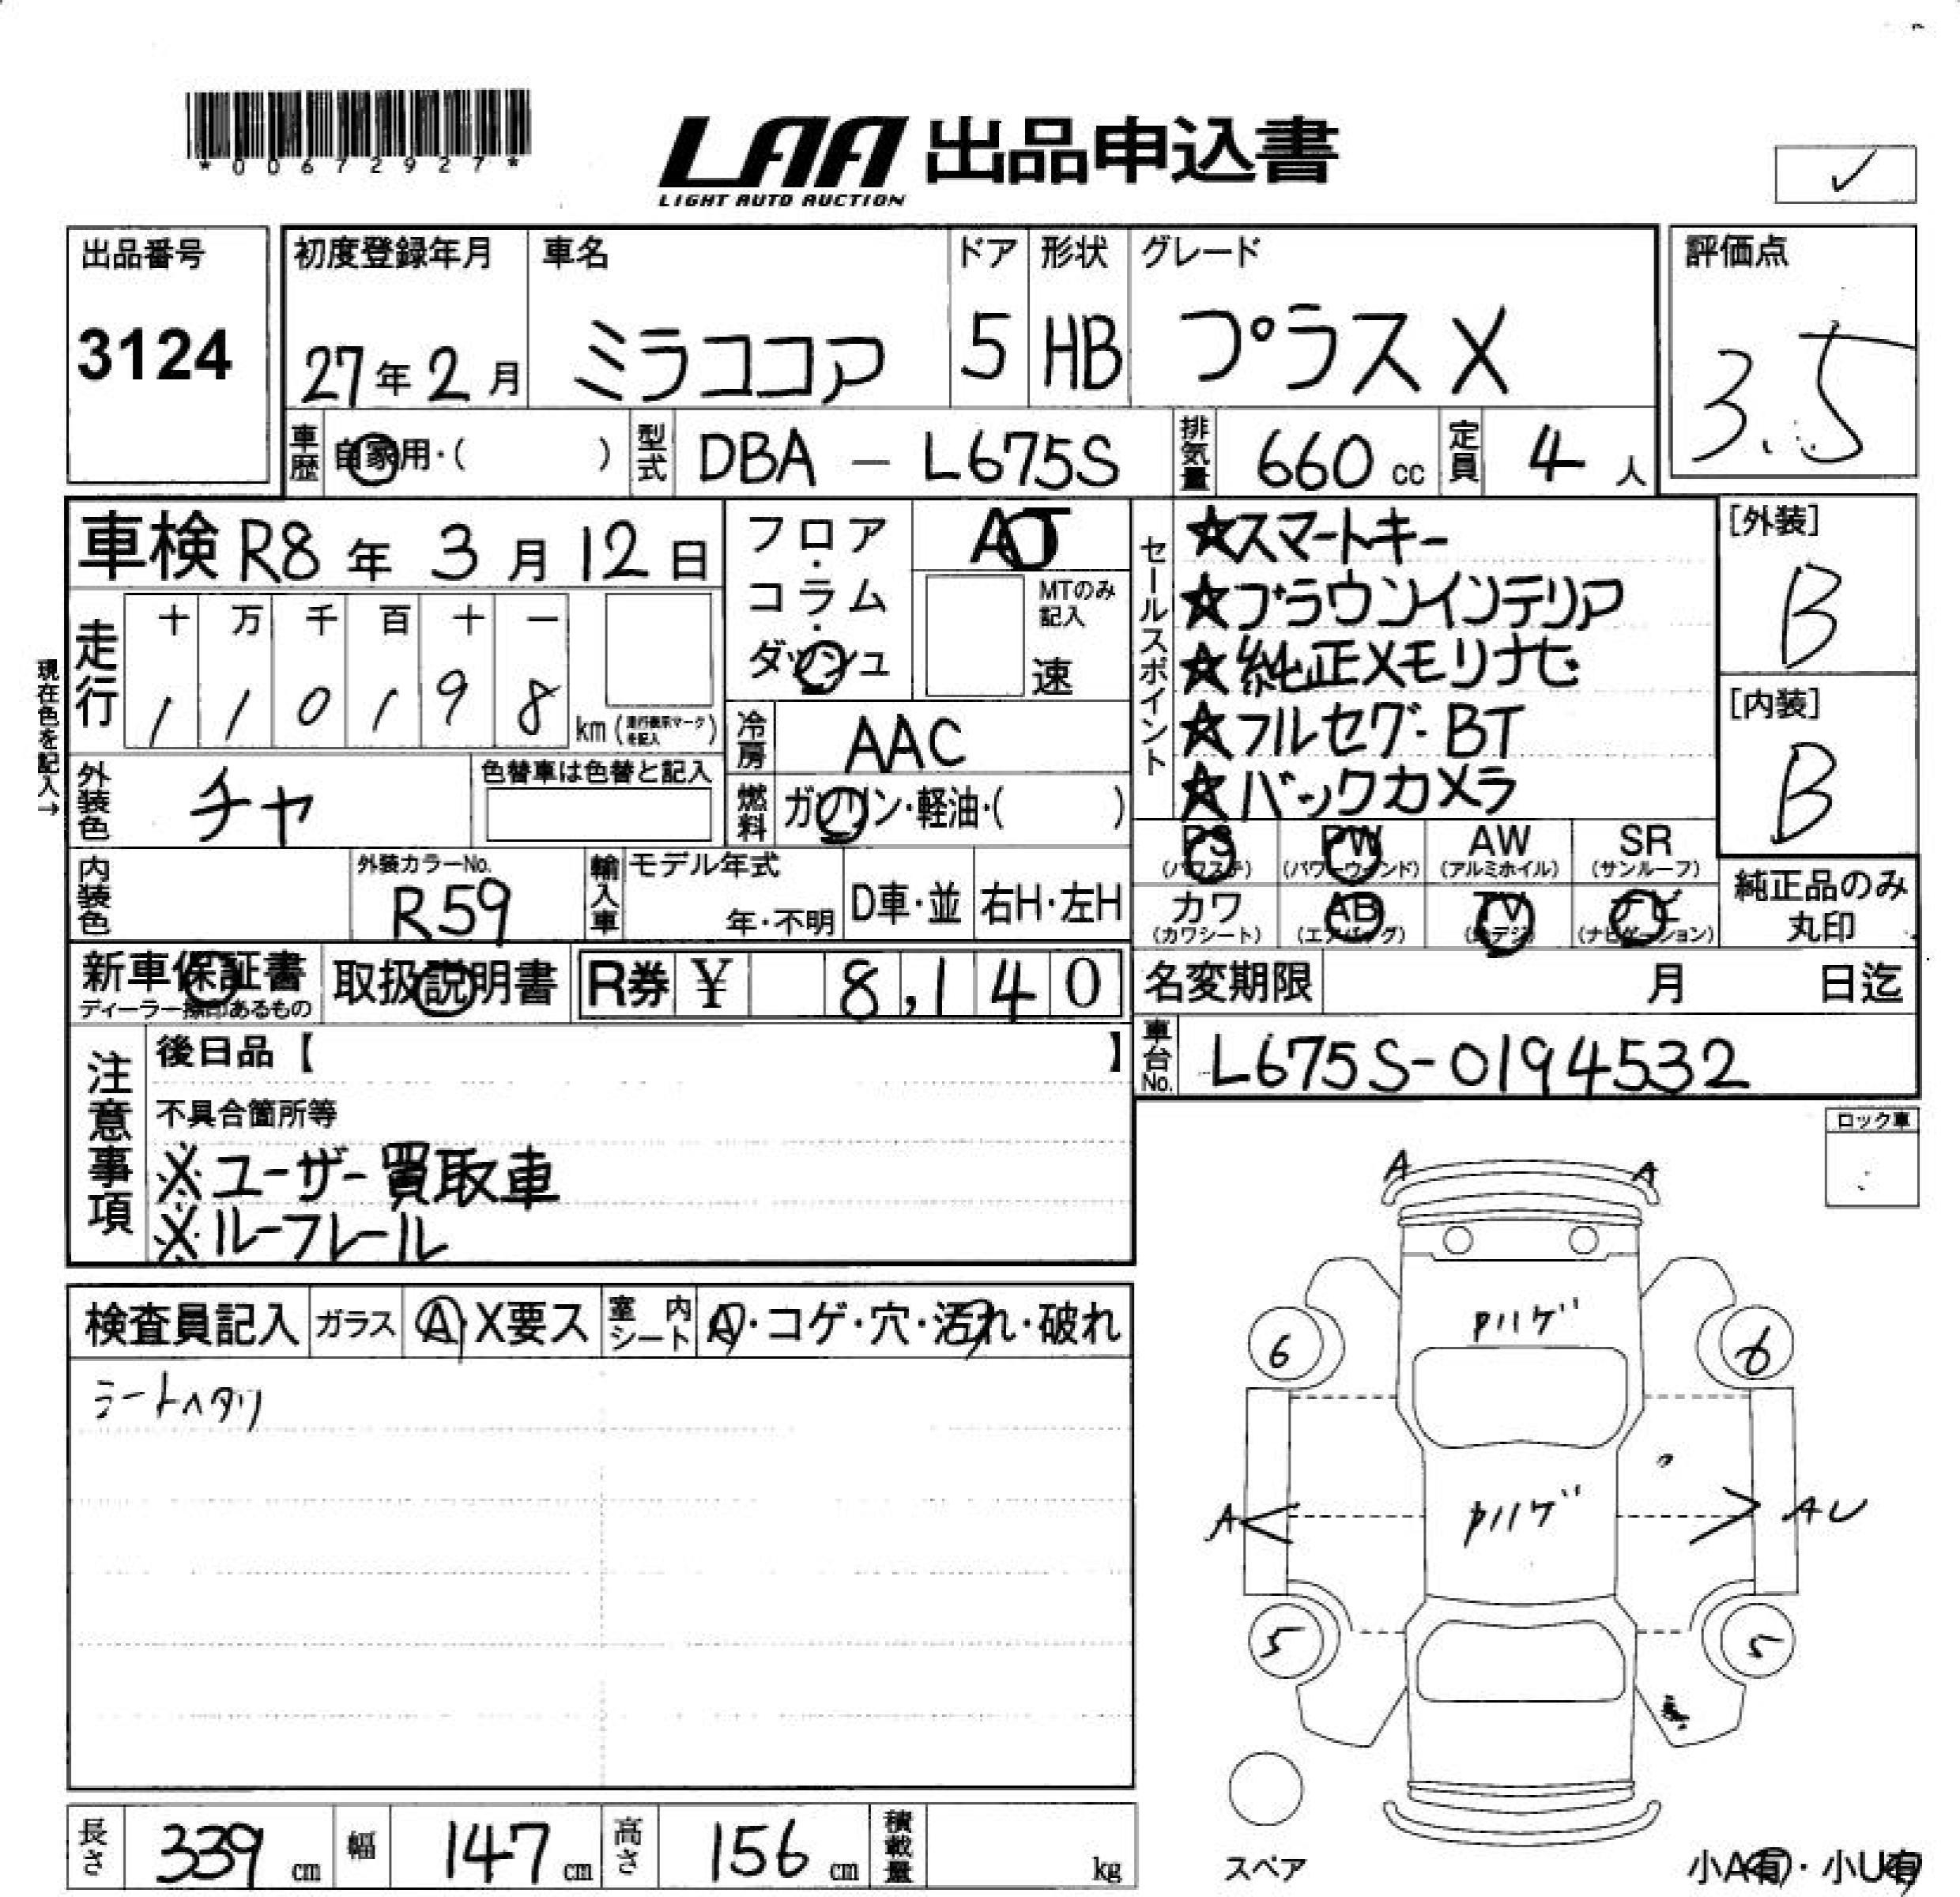 *00672927*
LAA 出品申込書
LIGHT AUTO AUCTION
✓
出品番号
3124
初度登録年月
27年2月
車名
ミラココア
ドア
5
形状
HB
グレード
プラスX
評価点
3.5
車歴 自家用・( )
型式 DBA - L675S
排気量 660 cc
定員 4 人
車検 R8年 3月 12日
フロア・コラム・ダッシュ
AT
MTのみ記入
速
セールスポイント
☆スマートキー
☆ブラウンインテリア
☆純正メモリナビ
☆フルセグ・BT
☆バックカメラ
[外装]
B
[内装]
B
現在色を記入→
走行
十 万 千 百 十 一
1 1 0 1 9 8
km (走行表示マークを記入)
冷房 AAC
外装色 チャ
色替車は色替と記入
燃料 ガソリン・軽油・( )
PS (パワステ)
PW (パワーウインド)
AW (アルミホイル)
SR (サンルーフ)
カワ (カワシート)
AB (エアバッグ)
TV (地デジ)
ナビ (ナビゲーション)
純正品のみ
丸印
内装色
外装カラーNo.
R59
輸入車
モデル年式
年・不明
D車・並
右H・左H
新車保証書
ディーラー捺印あるもの
取扱説明書
R券 ¥ 8,140
名変期限 月 日迄
車台No. L675S-0194532
注意事項
後日品【 】
不具合箇所等
※ユーザー買取車
※ルーフレール
ロック車
検査員記入
ガラス A・X要ス
室内シート A・コゲ・穴・汚れ・破れ
シートヘタリ
A A
クリハゲ
6 6
クリハゲ
A AU
5 5
スペア
小A有・小U有
長さ 339 cm
幅 147 cm
高さ 156 cm
積載量 kg